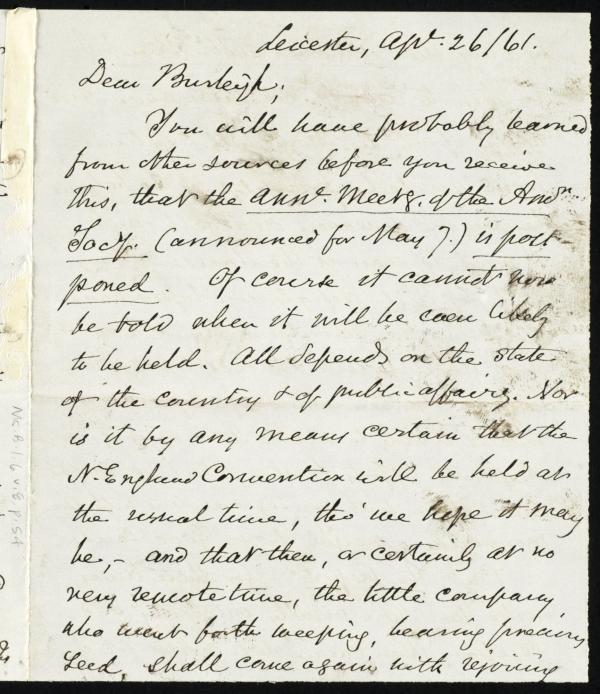 Leicester, Apl. 26/61.
Dear Burleigh;
You will have probably learned
from other sources before you receive
this, that the annl. Meetg. of the Amn.
Socy. (announced for May 7.) is post-
poned. Of course it cannot now
be told when it will be even likely
to be held. All depends on the state
of the country & of public affairs. Nor
is it by any means certain that the
N. England Convention will be held at
the usual time, tho' we hope it may
be,- and that then, or certainly at no
very remote time, the little company
who went forth weeping, bearing precious
seed, shall come again with rejoicing